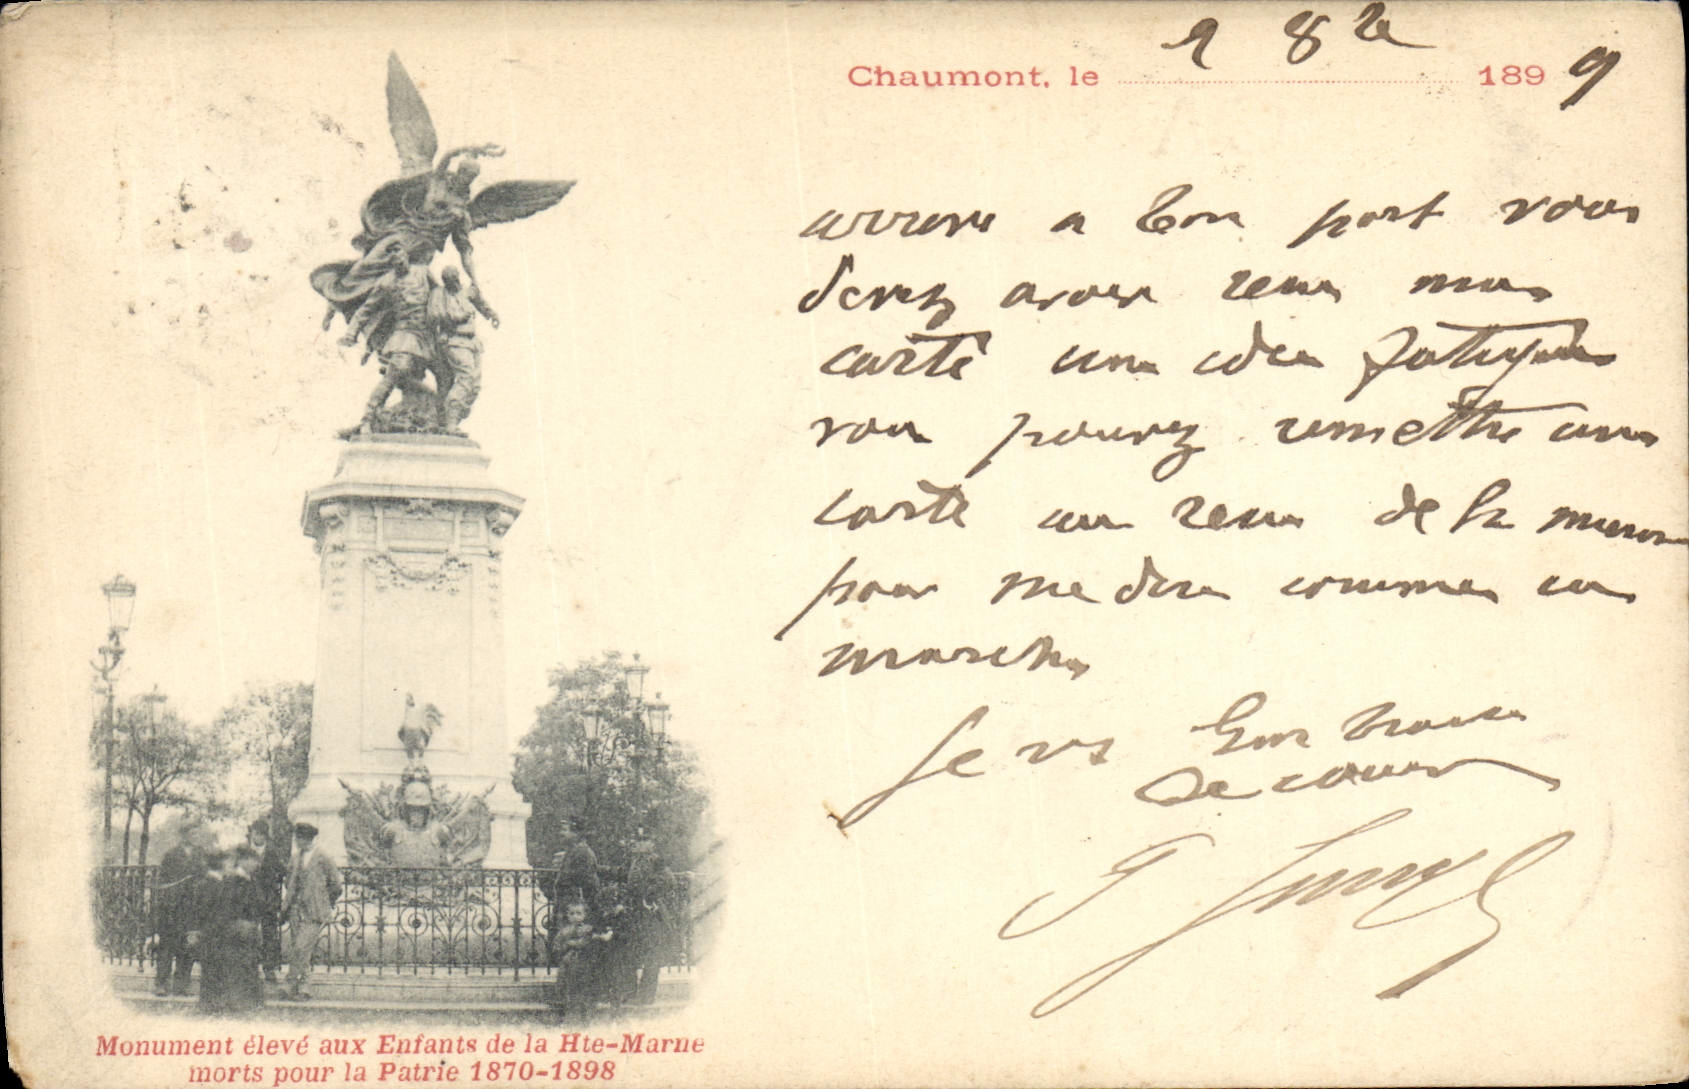 Chaumont, le 2 8bre 1899
arrivé a bon port vous
devez avoir reçu ma
carte une idée fatigué
vous pouvez remettre une
carte au reçu de la mienne
pour me dire comment ca
marche
Je vs
de coeur
Monument élevé aux Enfants de la Hte-Marne
morts pour la Patrie 1870-1898